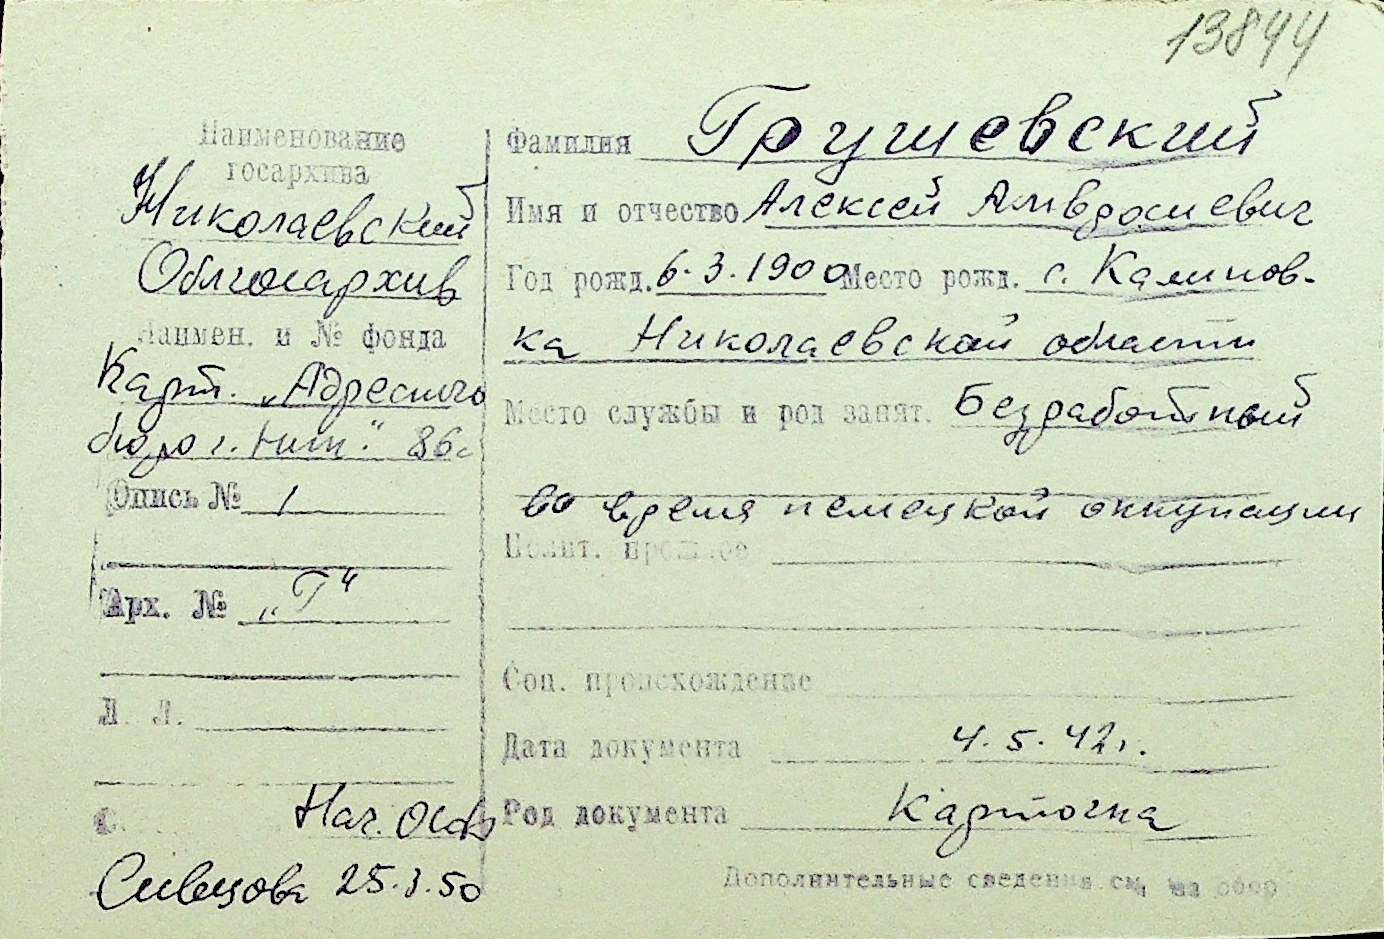 13844
Наименование
госархива
Николаевский
Облгосархив
Наимен. и № фонда
Карт. „Адресного
бюро г. Ник." 86с
Опись № 1
Арх. № „Г"
Л. Л.
С.
Нач. ОСФ
Сивцова 25.3.50
Фамилия Грушевский
Имя и отчество Алексей Амвросиевич
Год рожд. 6.3.1900 Место рожд. с. Калинов-
ка Николаевской области
Место службы и род занят. Безработный
во время немецкой оккупации
Полит. прошлое
Соц. происхождение
Дата документа 4.5.42г.
Род документа Карточка
Дополнительные сведения см. на обор